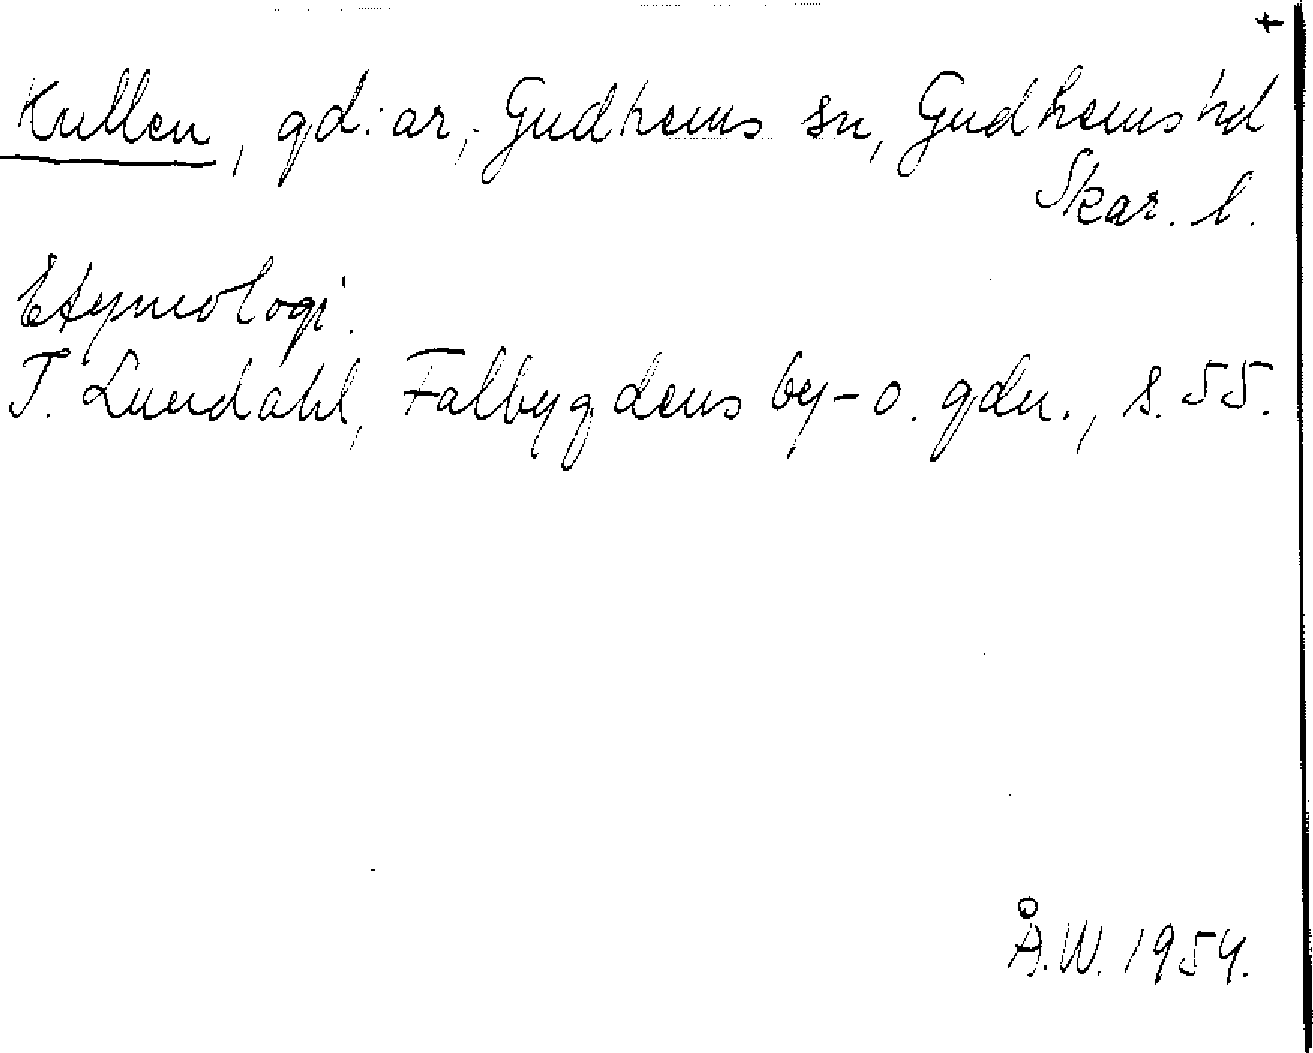 Kullen, gd:ar, Gudhems sn, Gudhems hd
Skar. l.
Etymologi.
I. Lundahl, Falbygdens by- o. gdn., s. 55.
Å.W. 1954.